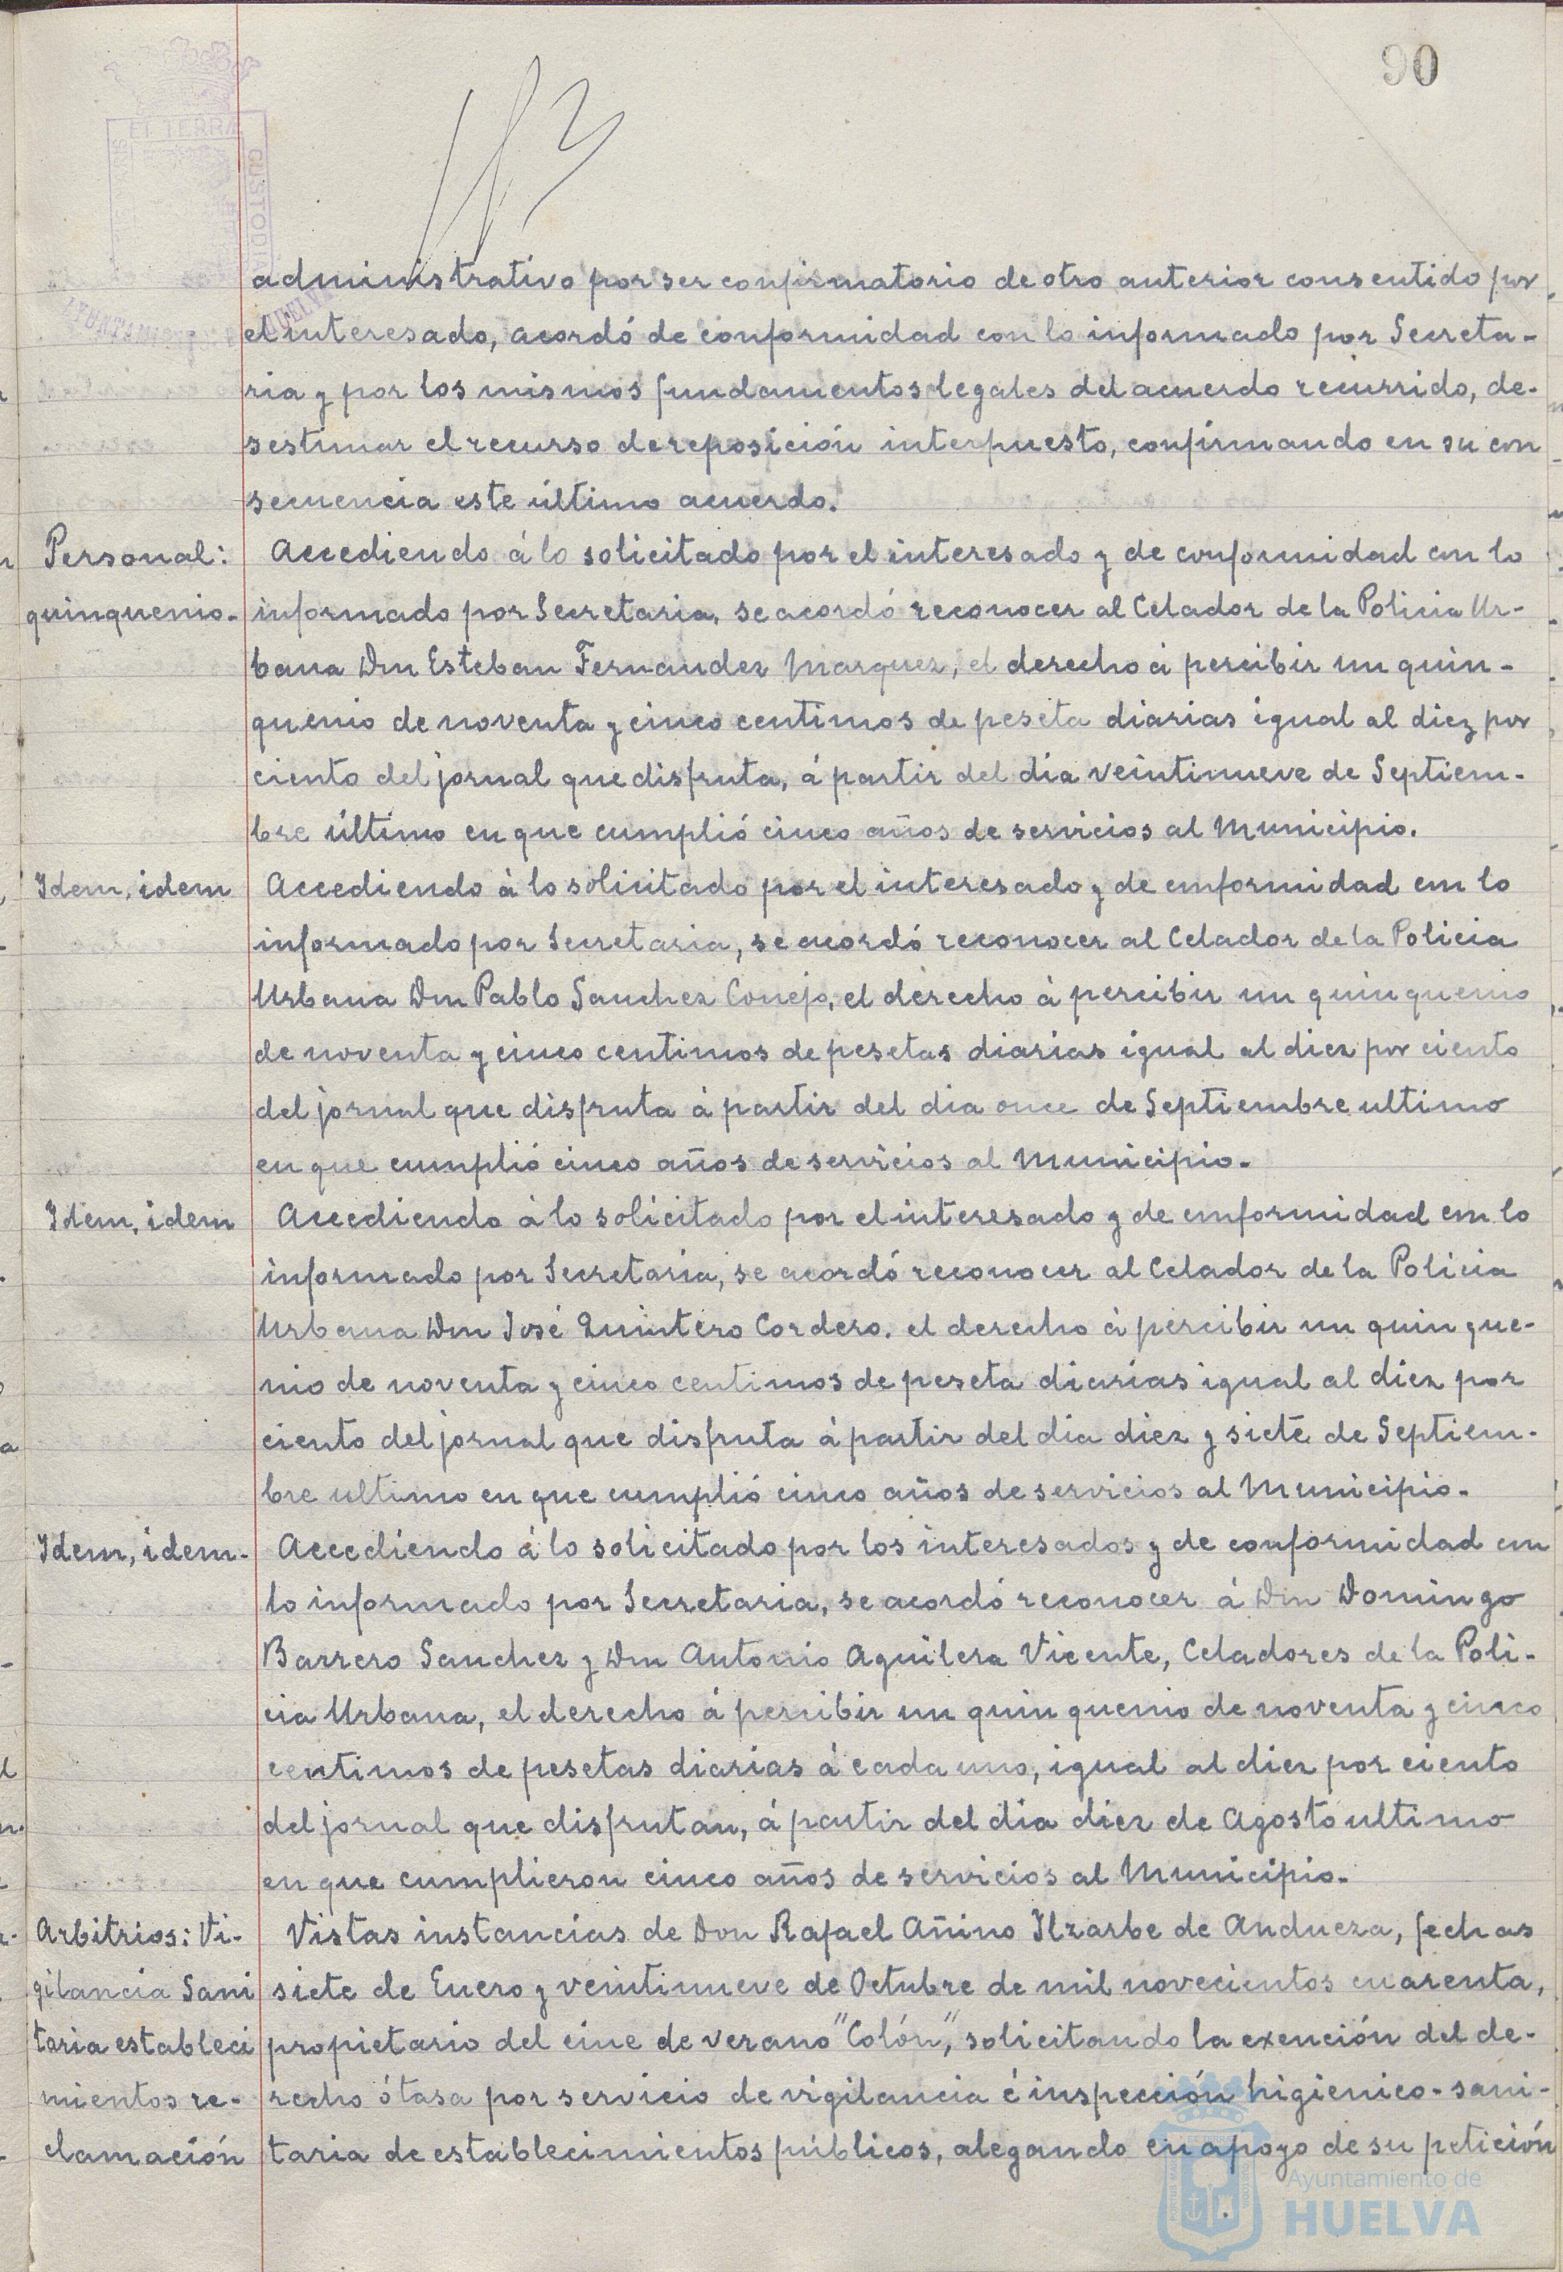 90
EL TERRÆ
CUSTODIA
administrativo por ser confirmatorio de otro anterior consentido por
el interesado, acordó de conformidad con lo informado por Secreta-
ria y por los mismos fundamentos legales del acuerdo recurrido, de-
sestimar el recurso de reposición interpuesto, confirmando en su con
secuencia este último acuerdo.
Personal:
quinquenio.
Accediendo á lo solicitado por el interesado y de conformidad con lo
informado por Secretaria, se acordó reconocer al Celador de la Policia Ur-
bana Don Esteban Fernandez Marquez, el derecho á percibir un quin-
quenio de noventa y cinco centimos de peseta diarias igual al diez por
ciento del jornal que disfruta, á partir del día veintinueve de Septiem-
bre último en que cumplió cinco años de servicios al Municipio.
Idem, idem
Accediendo á lo solicitado por el interesado y de conformidad con lo
informado por Secretaria, se acordó reconocer al Celador de la Policia
Urbana Don Pablo Sanchez Conejo, el derecho á percibir un quinquenio
de noventa y cinco centimos de pesetas diarias igual al diez por ciento
del jornal que disfruta á partir del dia once de Septiembre ultimo
en que cumplió cinco años de servicios al Municipio.
Idem, idem
Accediendo á lo solicitado por el interesado y de conformidad con lo
informado por Secretaría, se acordó reconocer al Celador de la Policia
Urbana Don José Quintero Cordero. el derecho á percibir un quinque-
nio de noventa y cinco centimos de peseta diarias igual al diez por
ciento del jornal que disfruta á partir del dia diez y siete de Septiem-
bre ultimo en que cumplió cinco años de servicios al Municipio.
Idem, idem.
Accediendo á lo solicitado por los interesados y de conformidad con
lo informado por Secretaria, se acordó reconocer á Don Domingo
Barrero Sanchez y Don Antonio Aguilera Vicente, Celadores de la Poli-
cia Urbana, el derecho á percibir un quinquenio de noventa y cinco
centimos de pesetas diarias á cada uno, igual al diez por ciento
del jornal que disfrutan, á partir del dia diez de Agosto ultimo
en que cumplieron cinco años de servicios al Municipio.
Arbitrios: Vi-
gilancia Sani
taria estableci
mientos re-
clamación
Vistas instancias de Don Rafael Añino Ilzarbe de Andueza, fechas
siete de Enero y veintinueve de Octubre de mil novecientos cuarenta,
propietario del cine de verano "Colón", solicitando la exención del de-
recho ó tasa por servicio de vigilancia é inspección higienico-sani-
taria de establecimientos públicos, alegando en apoyo de su petición
Ayuntamiento de
HUELVA